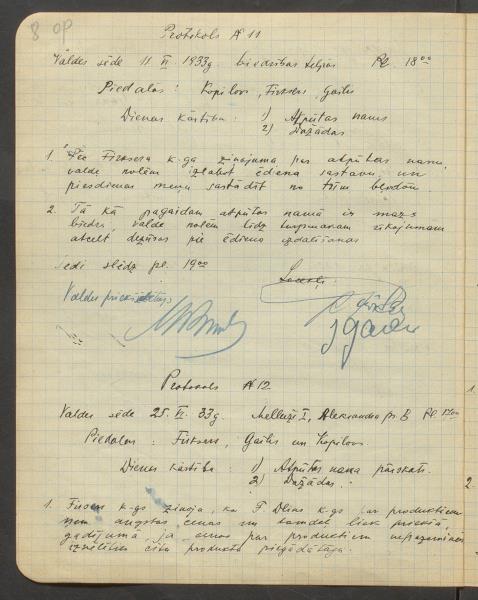 8 op
Protokols № 11
Valdes sēde 11. VI. 1933g. biedrības telpās Pl. 18⁰⁰
Piedalās: Kopilovs, Firksers, Gailis
Dienas kārtība: 1) Atpūtas nams
2) Dažādas
1. Pēc Firksera k-ga ziņojuma par atpūtas namu,
valde nolēm izlabot ēdienu sastāvu un
piesdienas meņu sastādīt no trim
2. Tā kā pagaidām atpūtas namā ir mazs
biedr, valde nolēm līdz turpmākam rīkojumam
atcelt dežūras pie ēdienu izdalīšanas
Sēdi slēdz pl. 19⁰⁰
Valdes priekšsēdētājs
Protokols № 12
Valdes sēde 25. VI. 33g. Melluži I, Aleksandra pr. 8 Pl. 
Piedalās: Firksers, Gailis un Kopilovs.
Dienas kārtība: 1) Atpūtas nama pārskats.
2) Dažādas.
1. k-gs ziņoja, ka k-gs par produktiem
ņem augstas cenas un tamdēļ liek priekšā,
gadījumā ja cenas par produktiem
izvēlēties citu produktu piegādātāju.
1.
2.